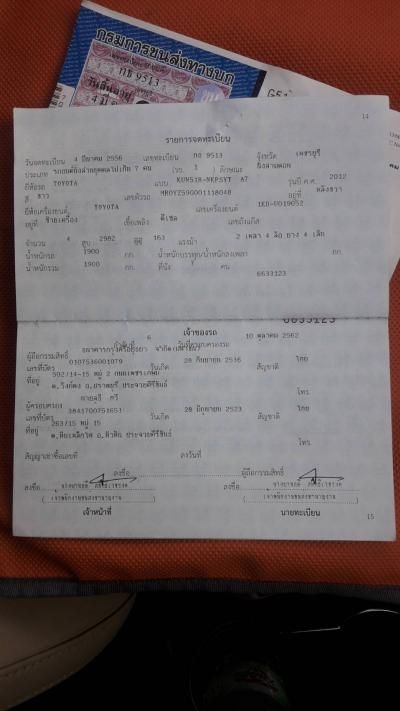 กรมการขนส่งทางบก
กธ 9513
วันสิ้นอายุ
14
รายการจดทะเบียน
วันจดทะเบียน 4 มีนาคม 2556 เลขทะเบียน กธ 9513 จังหวัด เพชรบุรี
ประเภท รถยนต์นั่งส่วนบุคคลไม่เกิน 7 คน (รย. 1) ลักษณะ นั่งสามตอน
ยี่ห้อรถ TOYOTA แบบ KUN51R-NKPSYT A7 รุ่นปี ค.ศ. 2012
สี ขาว เลขตัวรถ MR0YZ59G001118048 อยู่ที่
ยี่ห้อเครื่องยนต์ TOYOTA เลขเครื่องยนต์ 1KD-U019052
อยู่ที่ เชื้อเพลิง ดีเซล เลขถังแก๊ส
จำนวน 4 สูบ 2982 ซีซี 163 แรงม้า 2 เพลา 4 ล้อ ยาง 4 เส้น
น้ำหนักรถ 1900 กก. น้ำหนักบรรทุก/น้ำหนักลงเพลา กก.
น้ำหนักรวม 1900 กก. ที่นั่ง 7 คน
6633123
6633123
เจ้าของรถ
ลำดับที่ 6 วันที่ครอบครองรถ 10 ตุลาคม 2562
ผู้ถือกรรมสิทธิ์ ธนาคารกรุงศรีอยุธยา จำกัด (มหาชน)
เลขที่บัตร 0107536001079 วันเกิด 28 กันยายน 2536 สัญชาติ ไทย
ที่อยู่ 502/14-15 หมู่ 2 ถนนเพชรเกษม
ต.วังก์พง อ.ปราณบุรี ประจวบคีรีขันธ์ โทร.
ผู้ครอบครอง
เลขที่บัตร 3841700751651 วันเกิด 28 มิถุนายน 2523 สัญชาติ ไทย
ที่อยู่ 263/15 หมู่ 15
ต.หินเหล็กไฟ อ.หัวหิน ประจวบคีรีขันธ์ โทร.
สัญญาเช่าซื้อเลขที่ ลงวันที่
ลงชื่อ ผู้ถือกรรมสิทธิ์
ลงชื่อ ลงชื่อ
เจ้าหน้าที่ นายทะเบียน
15